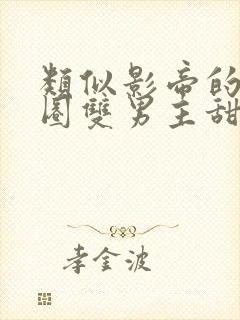 類似影帝的
圈雙男主甜
李金波